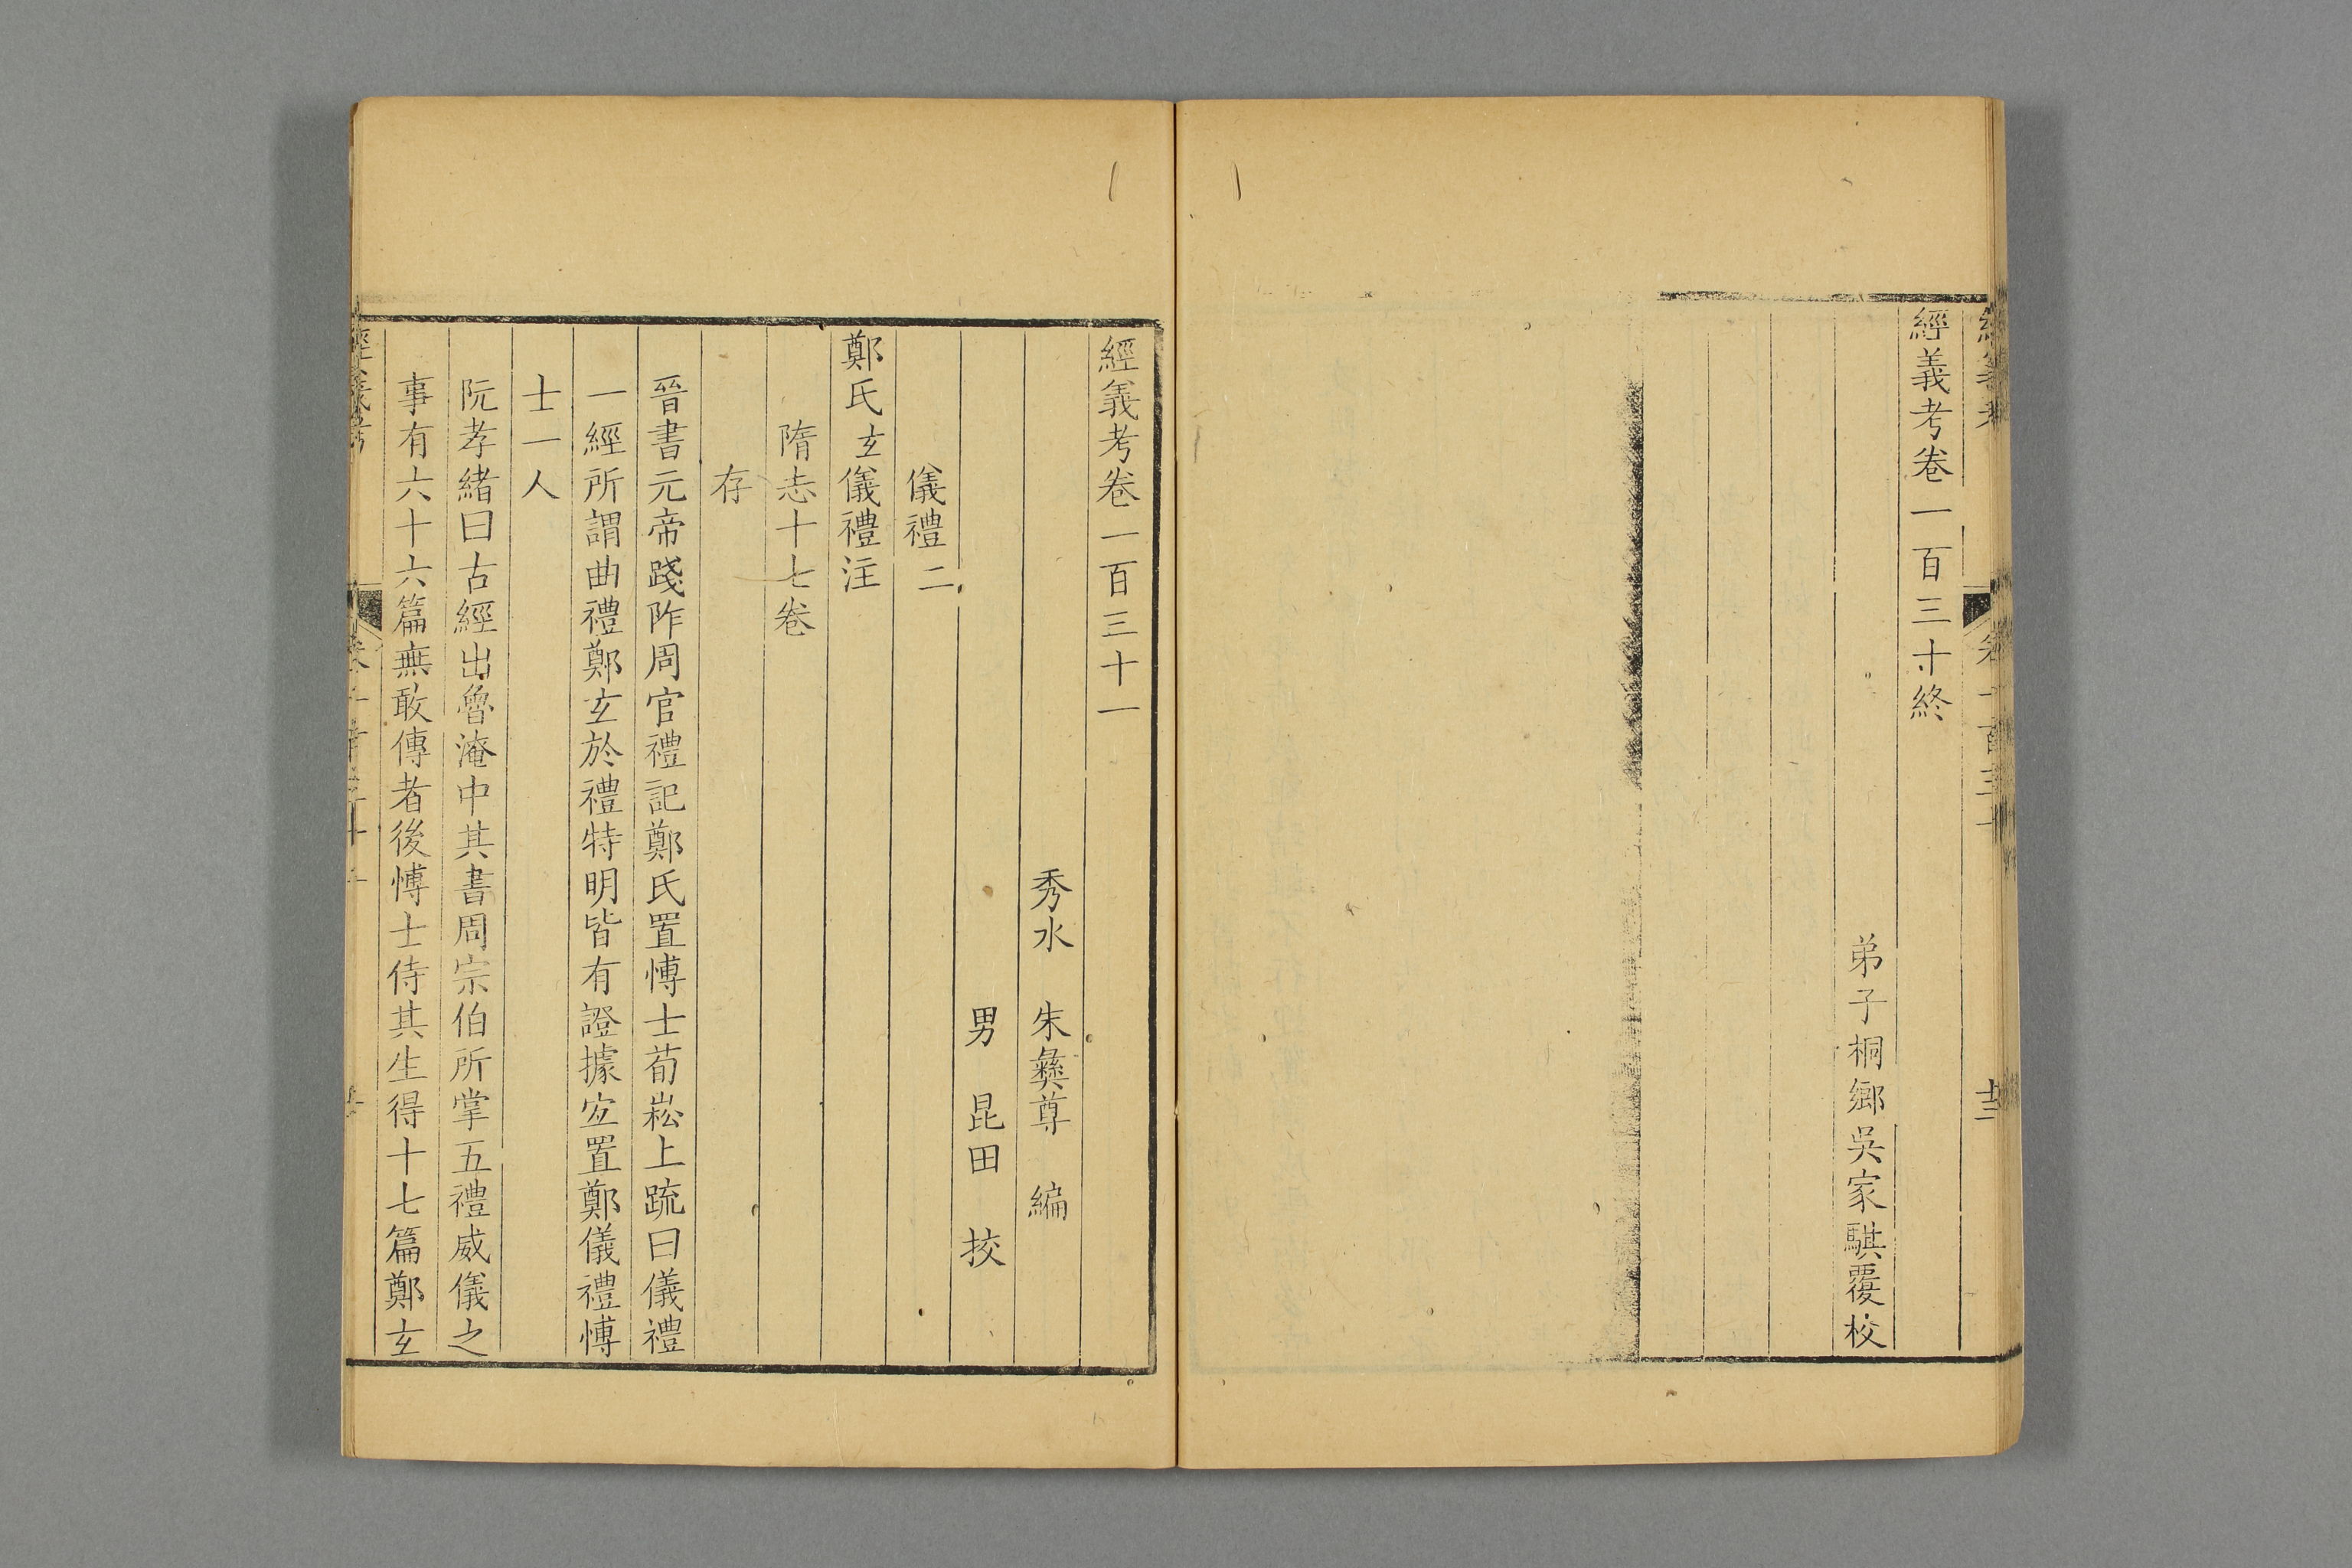 經義考卷一百三十終
弟子桐鄉吳家騏覆校
經義考卷一百三十一
秀水 朱彝尊 編
男 昆田 挍
儀禮二
鄭氏玄儀禮注
隋志十七卷
存
晉書元帝踐阼周官禮記鄭氏置愽士荀崧上䟽曰儀禮
一經所謂曲禮鄭玄於禮特明皆有證據宐置鄭儀禮愽
士一人
阮孝緒曰古經出魯淹中其書周宗伯所掌五禮威儀之
事有六十六篇無敢傳者後愽士侍其生得十七篇鄭玄